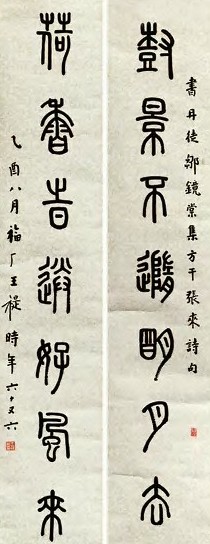 書丹徒鄒鏡棠集方干張耒詩句
尌景不隨朙月去
荷香旹送好風來
乙酉八月福厂王禔時年六十又六